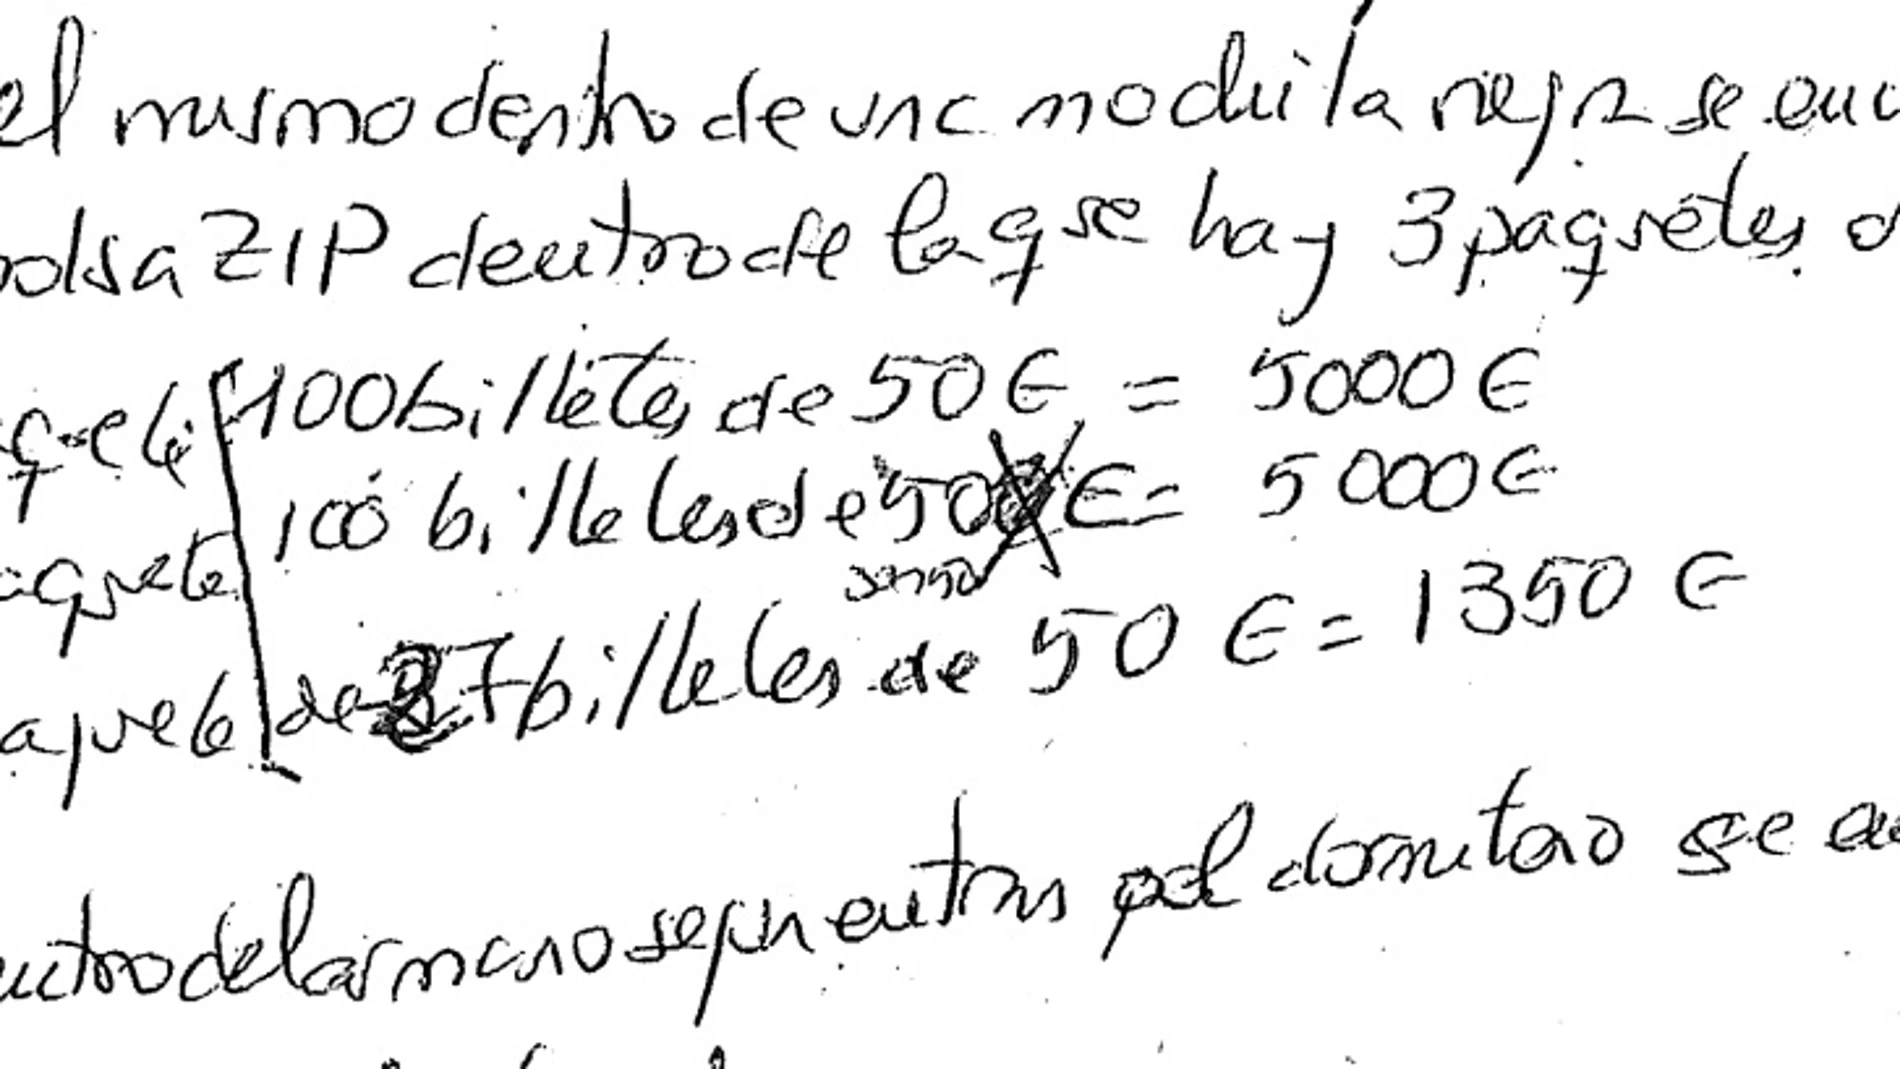 el mismo dentro de una mochila negra se encu
bolsa ZIP dentro de la q se hay 3 paquetes d
aquete 100 billetes de 50 € = 5000 €
aquete 100 billetes de 50 € = 5000 €
aquete de 27 billetes de 50 € = 1350 €
entro del armario segun entras al dormitorio se en